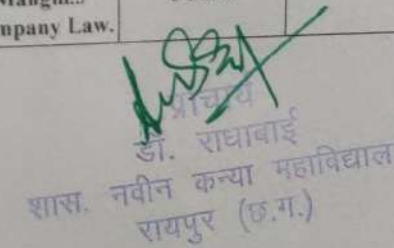 mpany Law.
प्राचार्य
डॉ. राधाबाई
शास. नवीन कन्या महाविद्याल
रायपुर (छ.ग.)